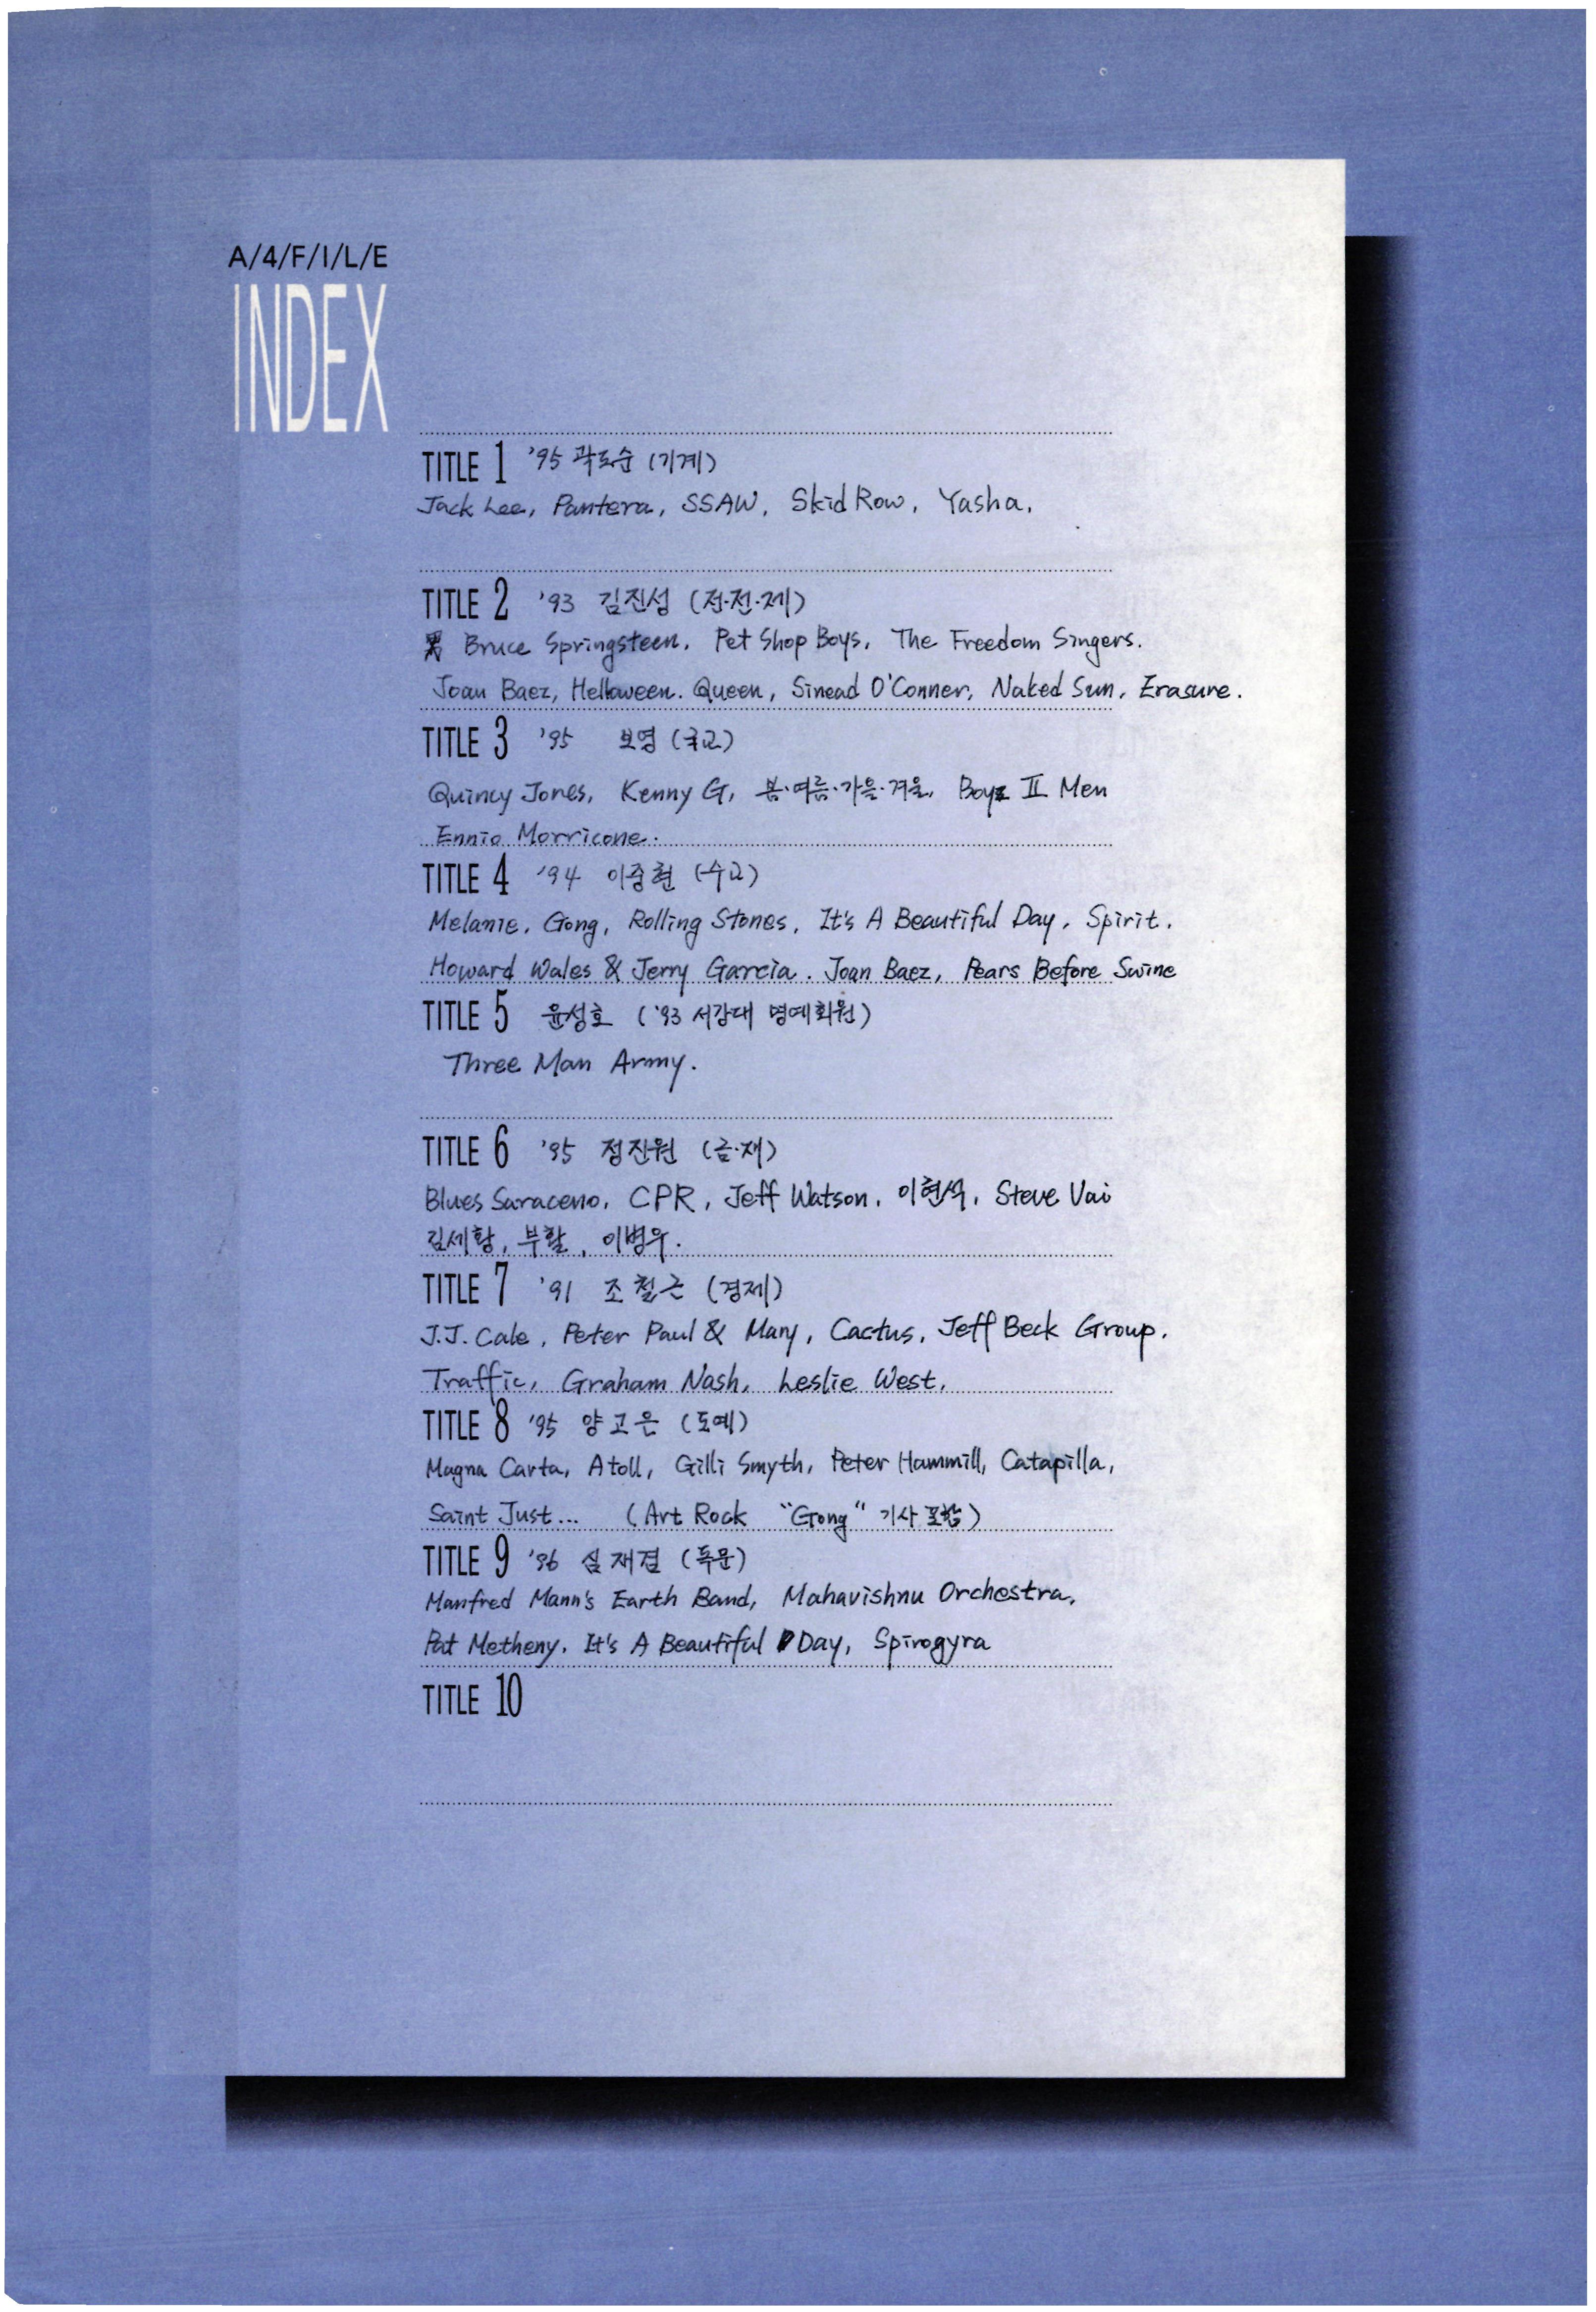 A/4/F/I/L/E
INDEX
TITLE 1 '95 곽도순 (기계)
Jack Lee, Pantera, SSAW, Skid Row, Yasha.
TITLE 2 '93 김진성 (전·전·제)
Bruce Springsteen, Pet Shop Boys, The Freedom Singers.
Joan Baez, Helloween. Queen, Sinead O'Conner, Naked Sun, Erasure.
TITLE 3 '95 보영 (국교)
Quincy Jones, Kenny G, 봄·여름·가을·겨울, Boyz II Men
Ennio Morricone.
TITLE 4 '94 이중현 (수교)
Melanie, Gong, Rolling Stones, It's A Beautiful Day, Spirit,
Howard Wales & Jerry Garcia. Joan Baez, Pears Before Swine
TITLE 5 윤성호 ('93 서강대 명예회원)
Three Man Army.
TITLE 6 '95 정진원 (금·재)
Blues Saraceno, CPR, Jeff Watson, 이현석, Steve Vai
김세황, 부활, 이병우.
TITLE 7 '91 조철근 (경제)
J.J. Cale, Peter Paul & Mary, Cactus, Jeff Beck Group,
Traffic, Graham Nash, Leslie West,
TITLE 8 '95 양고은 (도예)
Magna Carta, Atoll, Gilli Smyth, Peter Hammill, Catapilla,
Saint Just... (Art Rock "Gong" 기사 포함)
TITLE 9 '96 심재겸 (독문)
Manfred Mann's Earth Band, Mahavishnu Orchestra,
Pat Metheny, It's A Beautiful Day, Spirogyra
TITLE 10